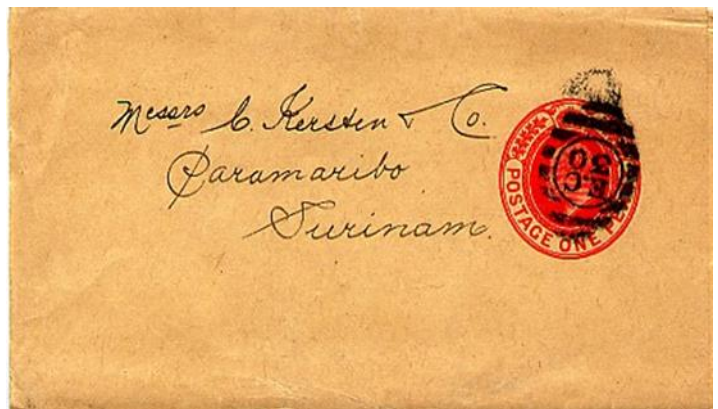 Messrs C. Kersten & Co.
Paramaribo
Surinam.
POSTAGE ONE